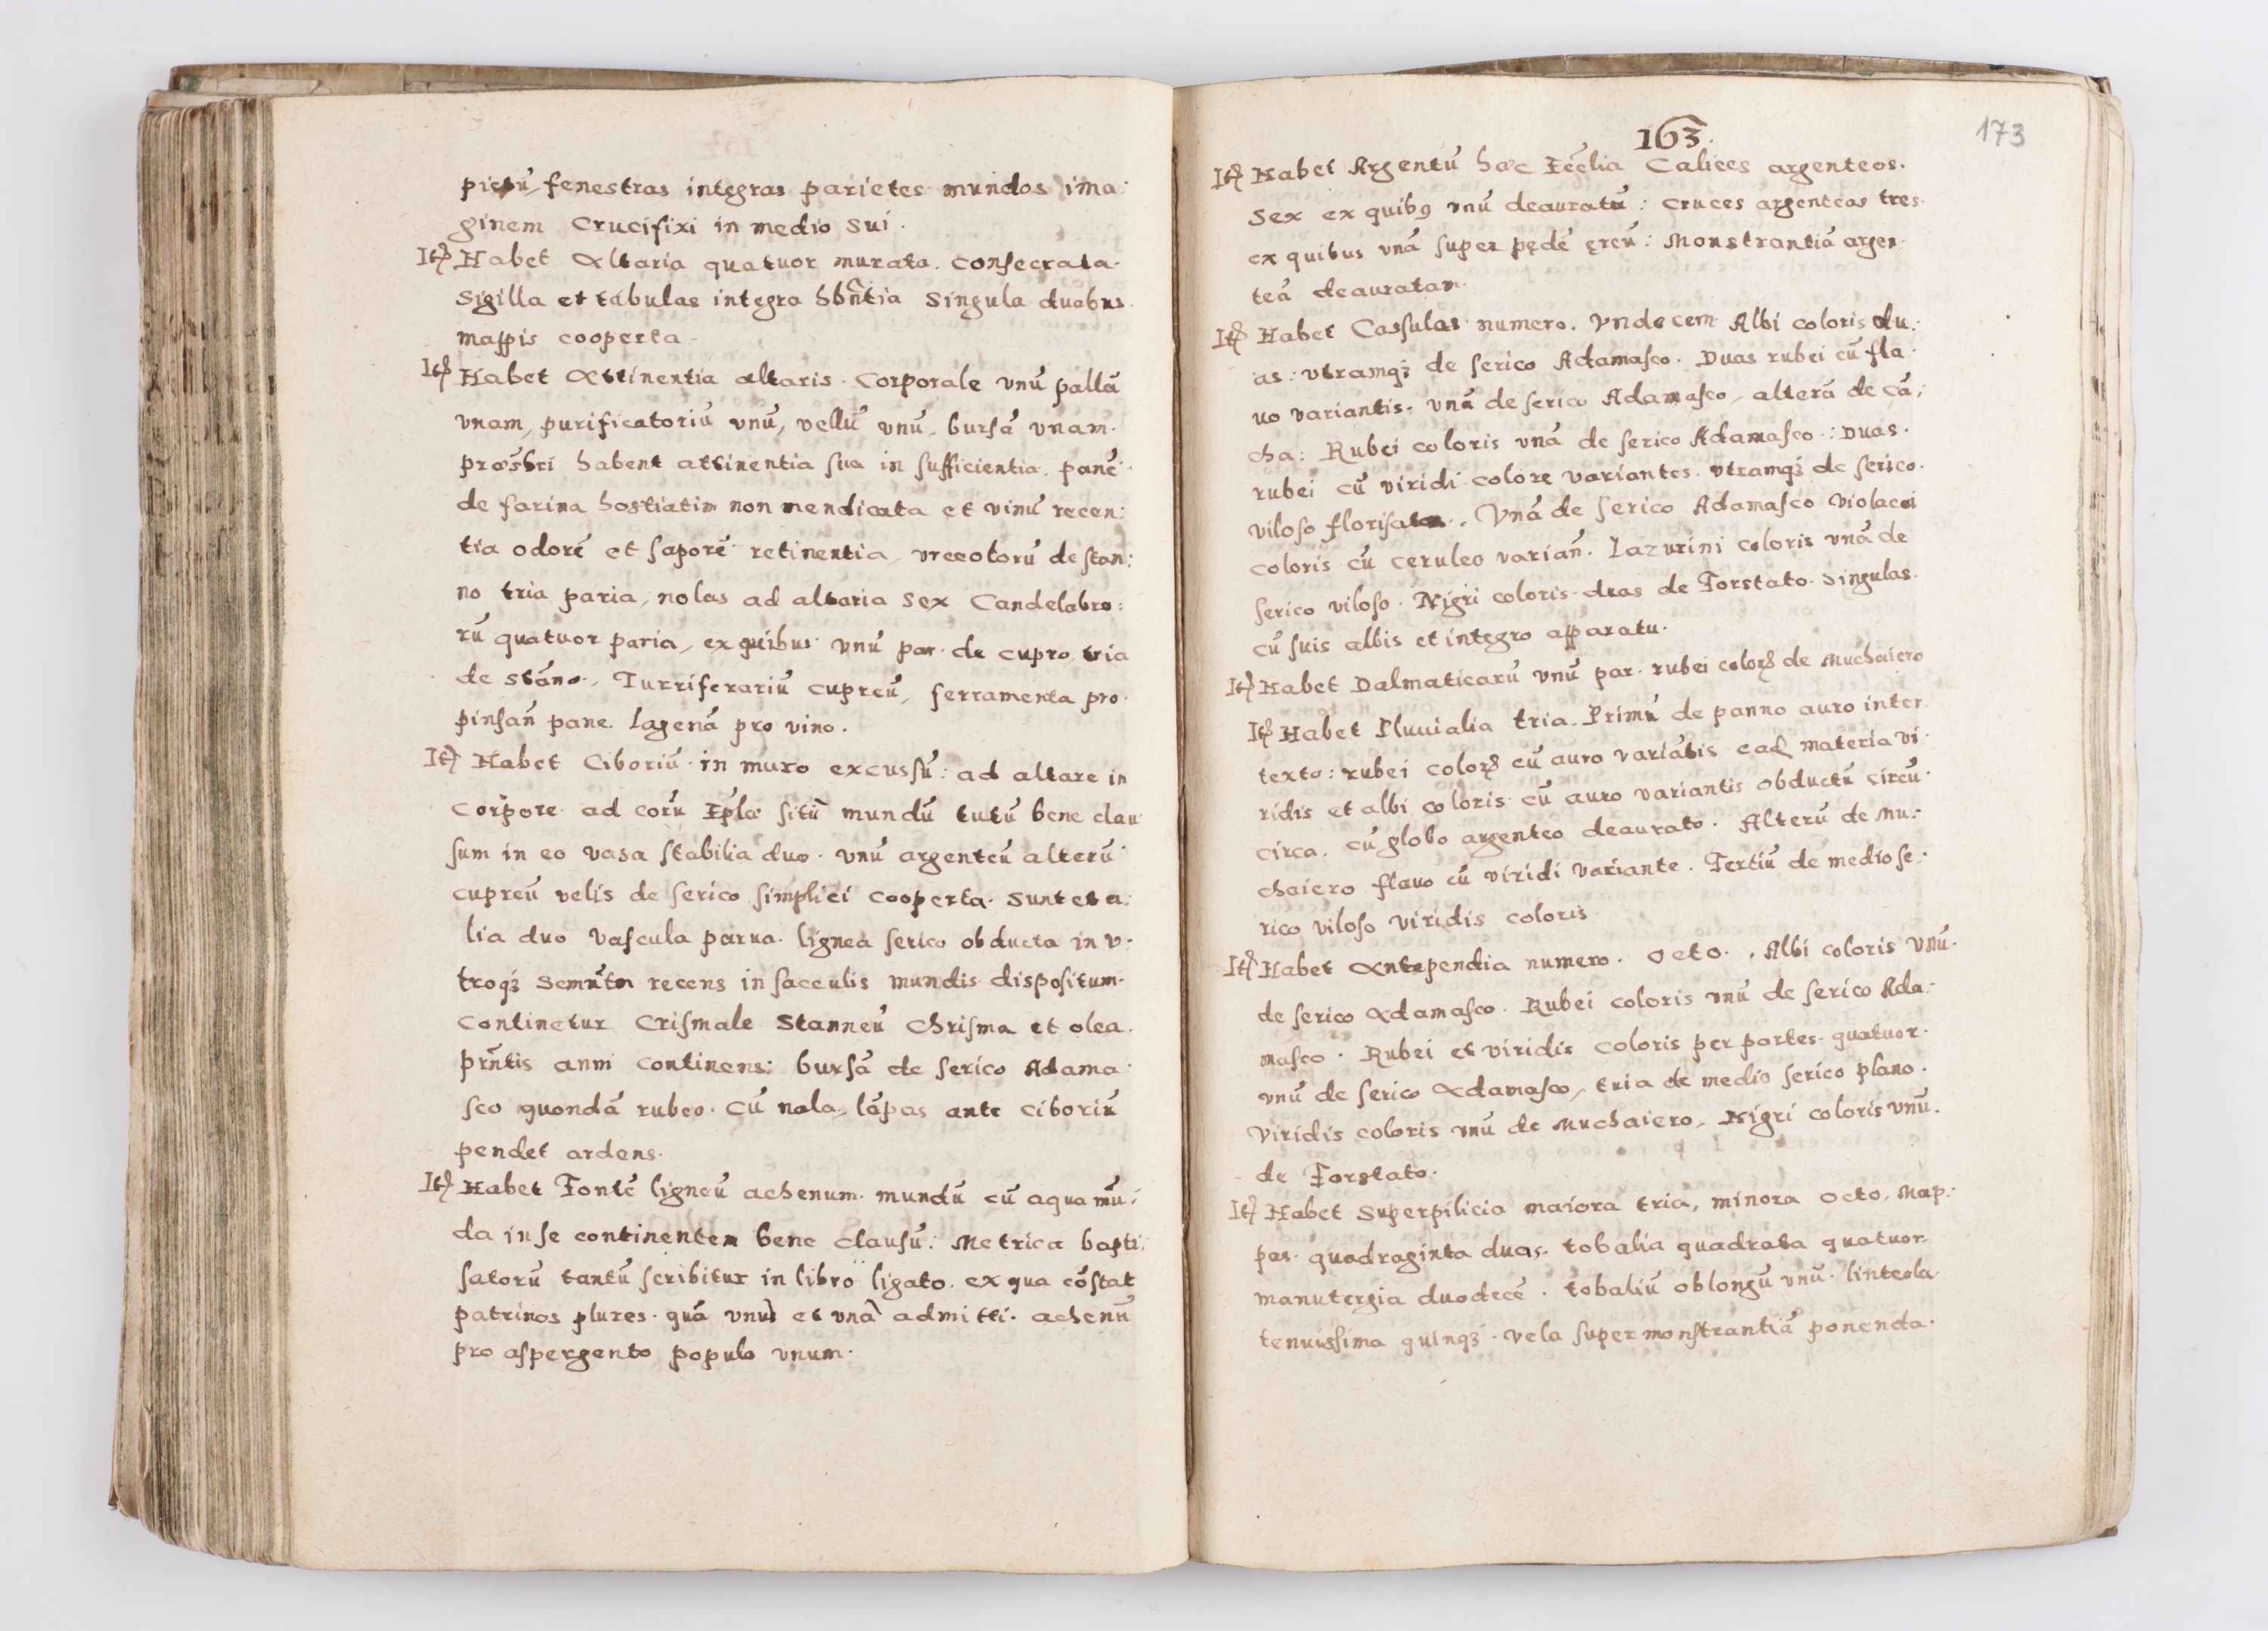 pictū, fenestras integras parietes mundos ima:
ginem Crucifixi in medio sui.
Itē Habet Altaria quatuor murata. consecrata.
Sigilla et tabulas integra hbñtia Singula duobus.
mappis cooperta.
Itē Habet Attinentia altaris. Corporale vnū pallā
vnam, purificatoriū vnū, vellū vnū, bursā vnam.
præsbri habent attinentia sua in sufficientia. panē
de farina hostiatim non mendicata et vinū recen:
tia odorē et saporē retinentia, vrceolorū de stan:
no tria paria, nolas ad altaria Sex Candelabro:
rū quatuor paria, ex quibus vnū par de cupro, tria
de stāno., Turriferariū cupreū, ferramenta pro
pinsan̄ pane. lagenā pro vino.
Itē Habet Ciboriū in muro excussū: ad altare in
Corpore ad corū Eplæ sitū mundū tutū bene clau
sum in eo vasa stabilia duo. vnū argenteū alterū
cupreū velis de serico simplici cooperta. Sunt et a:
lia duo vascula parua. lignea serico obducta in v:
troqꝫ Scmn̄tm recens in sacculis mundis dispositum.
Continetur Crismale Stanneū Chrisma et olea.
prn̄tis anni continens: bursā de serico Adama
sco quondā rubeo. Cū nola, lāpas ante ciboriū
pendet ardens.
Itē Habet Fontē ligneū achenum mundū cū aqua mū:
da in se continentem bene clausū: Metrica bapti:
satorū tantū scribitur in libro ligato. ex qua cōstat
patrinos plures. quā vnū et vnā admitti. achenū
pro aspergento populo vnum.
163.
173
Itē Habet Argentū hæc Eccĺia Calices argenteos.
Sex ex quibꝯ vnū deauratū: cruces argenteas tres.
ex quibus vnā super pędē ęreū: Monstrantiā argen
teā deauratam.
Itē Habet Cassulas numero. Vndecem Albi coloris du:
as: vtramqꝫ de serico Adamasco. Duas rubei cū fla
uo variantis. vnā de serico Adamasco, alterā de cā:
cha: Rubei coloris vnā de serico Adamasco.: Duas.
rubei cū viridi colore variantes. vtramqꝫ de serico.
viloso florisato., Vnā de serico Adamasco violacei
coloris cū ceruleo varian̄. Lazurini coloris vnā de
serico viloso. Nigri coloris duas de Forstato. Singulas.
cū suis albis et integro apparatu.
Itē Habet Dalmaticarū vnū par. rubei colorꝭ de Muchaiero
Itē Habet Pluuialia tria. Primū de panno auro inter
texto: rubei colorꝭ cū auro variātis eađ materia vi
ridis et albi coloris cū auro variantis obductū circū
circa. cū globo argenteo deaurato. Alterū de Mu:
chaiero flauo cū viridi variante. Tertiū de medio se:
rico viloso viridis coloris
Itē Habet Antependia numero. octo., Albi coloris vnū.
de serico Adamasco. Rubei coloris vnū de serico Ada:
masco. Rubei et viridis coloris per partes quatuor.
vnū de serico Adamasco, tria de medio serico plano.
Viridis coloris vnū de Muchaiero, Nigri coloris vnū.
de Forstato.
Itē Habet Superpilicia maiora tria, minora octo, Map:
pas. quadraginta duas. tobalia quadrata quatuor
manutergia duodecē. tobaliū oblongū vnū. linteola
tenuissima quinqꝫ. vela super monstrantiā ponenda.